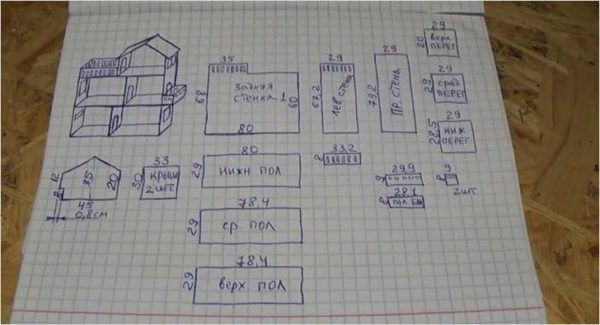 35
задняя
стенка 1
68
60
80
29
67,2
лев стена
29
79,2
Пр. стена
29
20
верх
ПЕРЕГ
29
29
сред
ПЕРЕГ
29
28,5
НИЖ
ПЕРЕГ
12
8
35
20
45
0,8см
33
30
КРЫШИ
2 шт
80
29
НИЖН ПОЛ
33,2
8
29,9
9
9
2шт
28,1
8
ПОЛ БАЛ
78,4
29
СР ПОЛ
78,4
29
ВЕРХ ПОЛ